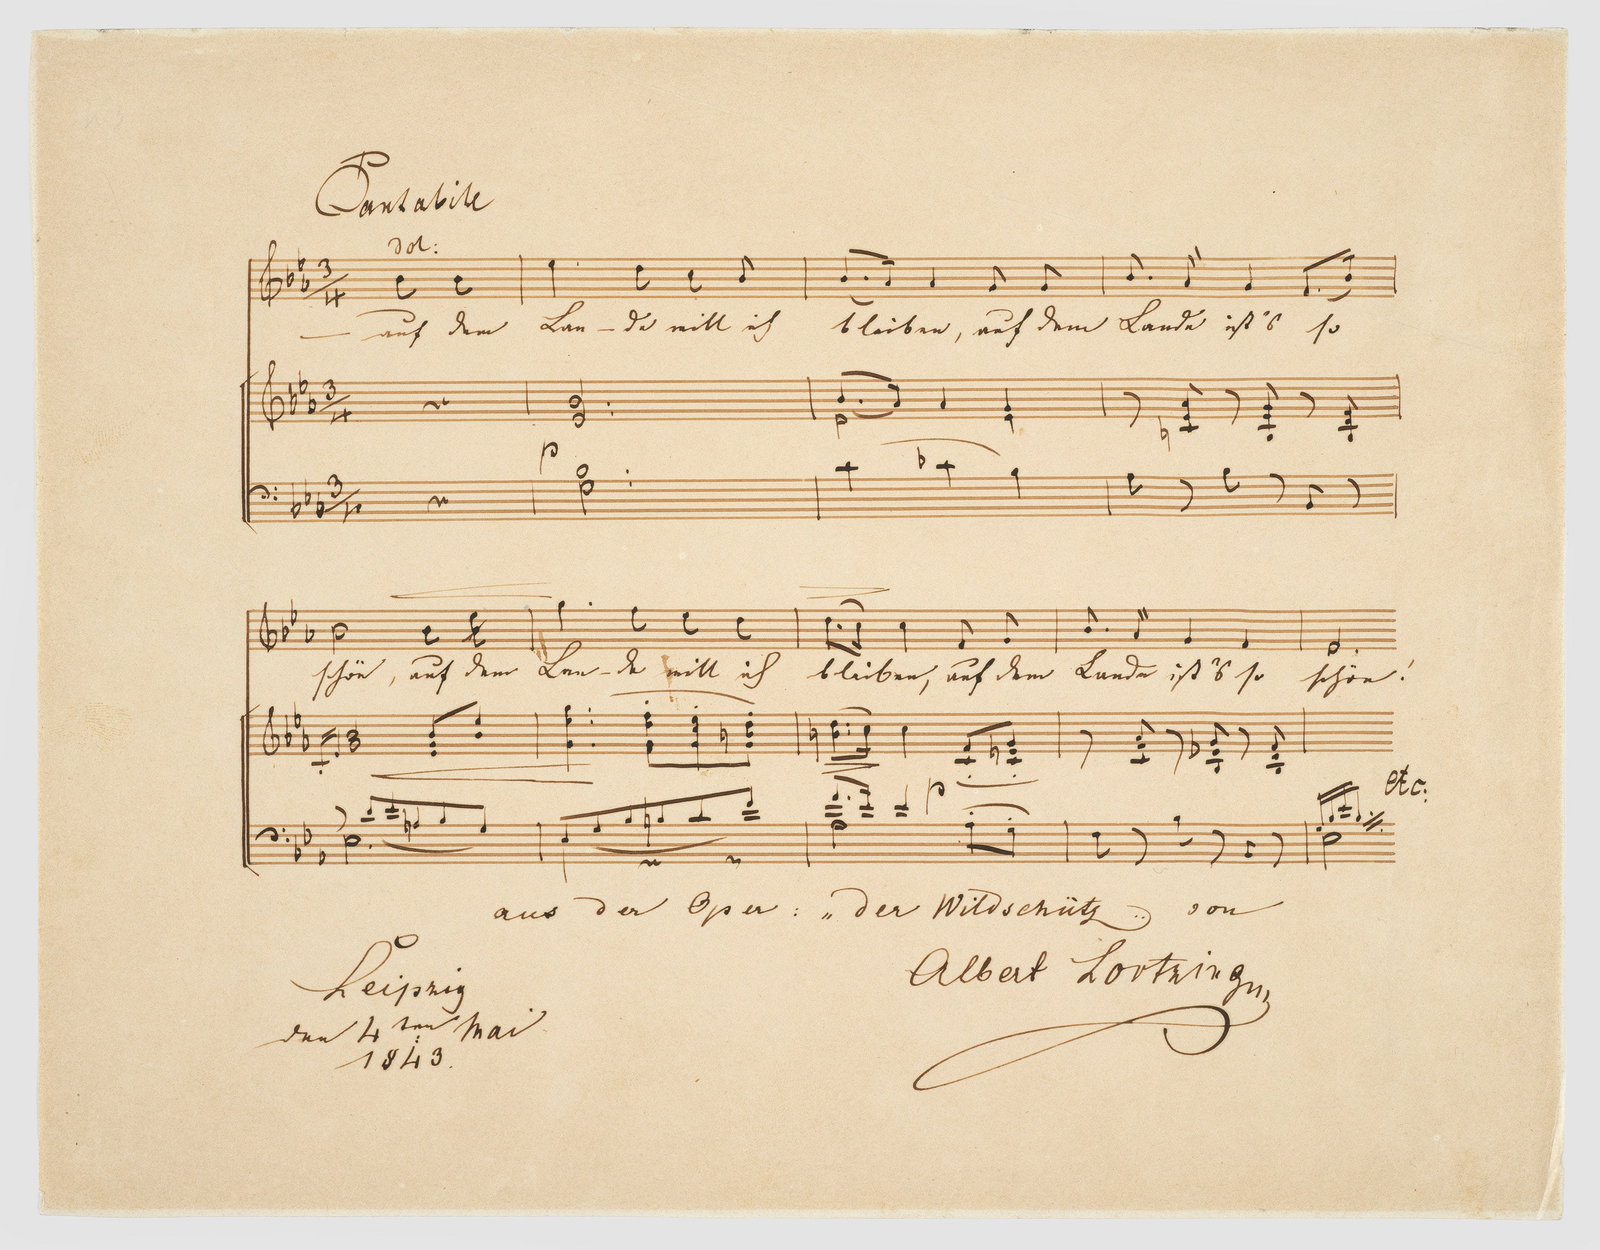 Cantabile
dol:
3/4
auf dem Lan-de will ich bleiben, auf dem Lande ist's so
3/4
p
3/4
schön, auf dem Lan-de will ich bleiben, auf dem Lande ist's so schön!
p
etc:
aus der Oper: „der Wildschütz" von
Albert Lortzing
Leipzig
den 4ten Mai
1843.